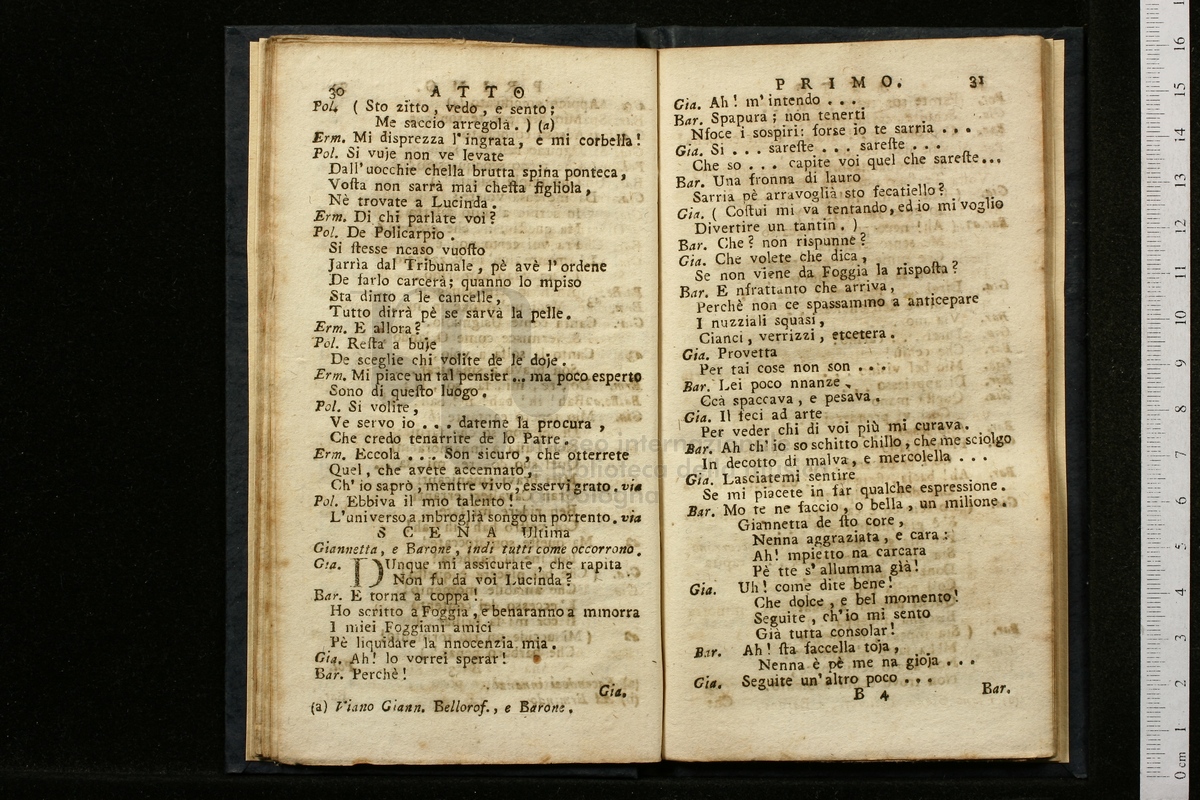 30 A T T O
Pol. ( Sto zitto, vedo, e sento;
Me saccio arregolà. ) (a)
Erm. Mi disprezza l'ingrata, e mi corbella!
Pol. Si vuje non ve levate
Dall'uocchie chella brutta spina ponteca,
Vosta non sarrà mai chesta figliola,
Nè trovate a Lucinda.
Erm. Di chi parlate voi?
Pol. De Policarpio.
Si stesse ncaso vuosto
Jarrìa dal Tribunale, pè avè l'ordene
De farlo carcerà; quanno lo mpiso
Sta dinto a le cancelle,
Tutto dirrà pe se sarvà la pelle.
Erm. E allora?
Pol. Resta a buje
De sceglie chi volite de le doje.
Erm. Mi piace un tal pensier... ma poco esperto
Sono di questo luogo.
Pol. Si volite,
Ve servo io . . . dateme la procura,
Che credo tenarrite de lo Patre.
Erm. Eccola . . . Son sicuro, che otterrete
Quel, che avete accennato,
Ch'io saprò, mentre vivo, esservi grato. via
Pol. Ebbiva il mio talento!
L'universo a mbroglià songo un portento. via
S C E N A Ultima
Giannetta, e Barone, indi tutti come occorrono.
Gia. DUnque mi assicurate, che rapita
Non fu da voi Lucinda?
Bar. E torna a coppa!
Ho scritto a Foggia, e benaranno a mmorra
I miei Foggiani amici
Pè liquidare la nnocenzia mia.
Gia. Ah! lo vorrei sperar!
Bar. Perchè!
Gia.
(a) Viano Giann. Bellorof., e Barone.
P R I M O. 31
Gia. Ah! m'intendo . . .
Bar. Spapura; non tenerti
Nfoce i sospiri: forse io te sarria . . .
Gia. Si . . . sareste . . . sareste . . .
Che so . . . capite voi quel che sareste...
Bar. Una fronna di lauro
Sarria pè arravoglià sto fecatiello?
Gia. ( Costui mi va tentando, ed io mi voglio
Divertire un tantin. )
Bar. Che? non rispunne?
Gia. Che volete che dica,
Se non viene da Foggia la risposta?
Bar. E nfrattanto che arriva,
Perchè non ce spassammo a anticepare
I nuzziali squasi,
Cianci, verrizzi, etcetera.
Gia. Provetta
Per tai cose non son . . .
Bar. Lei poco nnanze,
Ccà spaccava, e pesava.
Gia. Il feci ad arte
Per veder chi di voi più mi curava.
Bar. Ah ch'io so schitto chillo, che me sciolgo
In decotto di malva, e mercolella . . .
Gia. Lasciatemi sentire
Se mi piacete in far qualche espressione.
Bar. Mo te ne faccio, o bella, un milione.
Giannetta de sto core,
Nenna aggraziata, e cara:
Ah! mpietto na carcara
Pè tte s'allumma già!
Gia. Uh! come dite bene!
Che dolce, e bel momento!
Seguite, ch'io mi sento
Già tutta consolar!
Bar. Ah! sta faccella toja,
Nenna è pè me na gioja . . .
Gia. Seguite un'altro poco . . .
B 4 Bar.